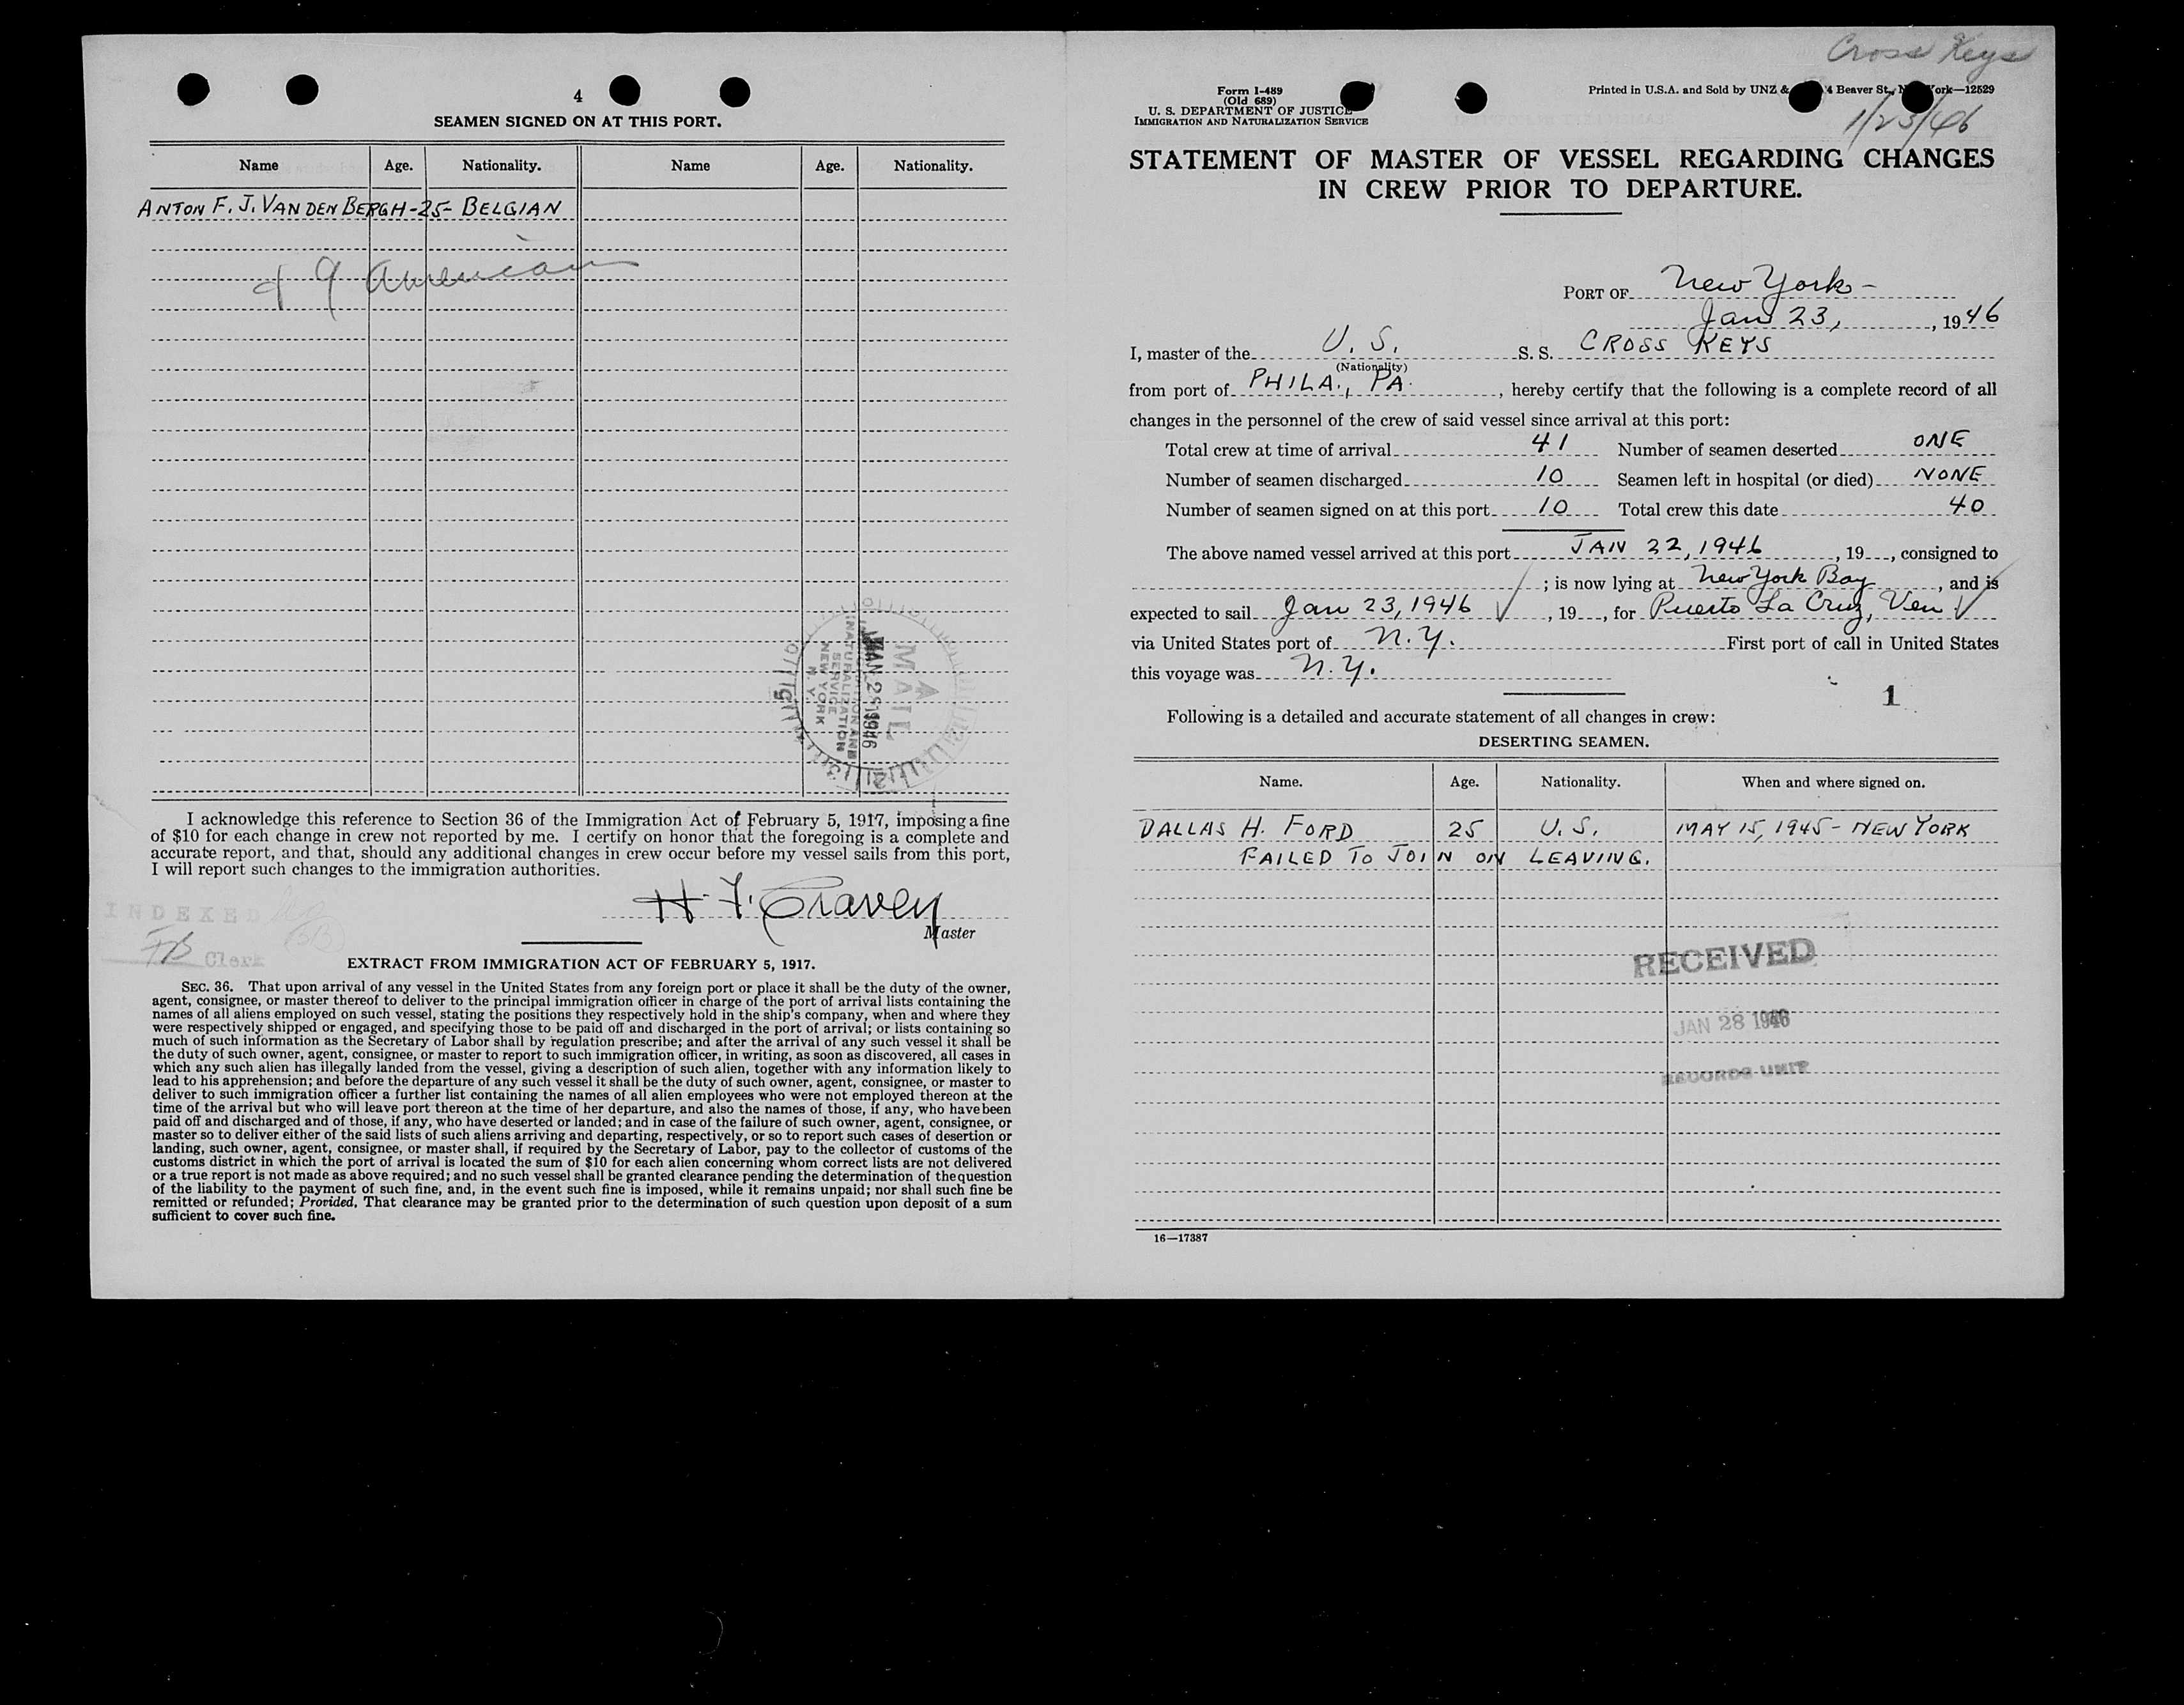 4
SEAMEN SIGNED ON AT THIS PORT.
Name Age. Nationality. Name Age. Nationality.
ANTON F. J. VAN DEN BERGH-25- BELGIAN
& 9 Americans
MAIL
JAN 28 1946
NATURALIZATION
SERVICE
NEW YORK
N. Y.
I acknowledge this reference to Section 36 of the Immigration Act of February 5, 1917, imposing a fine
of $10 for each change in crew not reported by me. I certify on honor that the foregoing is a complete and
accurate report, and that, should any additional changes in crew occur before my vessel sails from this port,
I will report such changes to the immigration authorities.
H. F. Craven
Master
INDEXED
Clerk
EXTRACT FROM IMMIGRATION ACT OF FEBRUARY 5, 1917.
SEC. 36. That upon arrival of any vessel in the United States from any foreign port or place it shall be the duty of the owner,
agent, consignee, or master thereof to deliver to the principal immigration officer in charge of the port of arrival lists containing the
names of all aliens employed on such vessel, stating the positions they respectively hold in the ship's company, when and where they
were respectively shipped or engaged, and specifying those to be paid off and discharged in the port of arrival; or lists containing so
much of such information as the Secretary of Labor shall by regulation prescribe; and after the arrival of any such vessel it shall be
the duty of such owner, agent, consignee, or master to report to such immigration officer, in writing, as soon as discovered, all cases in
which any such alien has illegally landed from the vessel, giving a description of such alien, together with any information likely to
lead to his apprehension; and before the departure of any such vessel it shall be the duty of such owner, agent, consignee, or master to
deliver to such immigration officer a further list containing the names of all alien employees who were not employed thereon at the
time of the arrival but who will leave port thereon at the time of her departure, and also the names of those, if any, who have been
paid off and discharged and of those, if any, who have deserted or landed; and in case of the failure of such owner, agent, consignee, or
master so to deliver either of the said lists of such aliens arriving and departing, respectively, or so to report such cases of desertion or
landing, such owner, agent, consignee, or master shall, if required by the Secretary of Labor, pay to the collector of customs of the
customs district in which the port of arrival is located the sum of $10 for each alien concerning whom correct lists are not delivered
or a true report is not made as above required; and no such vessel shall be granted clearance pending the determination of the question
of the liability to the payment of such fine, and, in the event such fine is imposed, while it remains unpaid; nor shall such fine be
remitted or refunded; Provided, That clearance may be granted prior to the determination of such question upon deposit of a sum
sufficient to cover such fine.
Cross Keys
1/23/46
Form I-489
(Old 689)
U. S. DEPARTMENT OF JUSTICE
IMMIGRATION AND NATURALIZATION SERVICE
Printed in U.S.A. and Sold by UNZ & 4 Beaver St., N ork—12529
STATEMENT OF MASTER OF VESSEL REGARDING CHANGES
IN CREW PRIOR TO DEPARTURE.
PORT OF New York-
Jan 23, , 1946
I, master of the U. S. S. S. CROSS KEYS
(Nationality)
from port of PHILA., PA. , hereby certify that the following is a complete record of all
changes in the personnel of the crew of said vessel since arrival at this port:
Total crew at time of arrival 41 Number of seamen deserted ONE
Number of seamen discharged 10 Seamen left in hospital (or died) NONE
Number of seamen signed on at this port 10 Total crew this date 40
The above named vessel arrived at this port JAN 22, 1946 , 19 , consigned to
; is now lying at New York Bay , and is
expected to sail Jan 23, 1946 , 19 , for Puerto La Cruz, Ven
via United States port of N. Y. First port of call in United States
this voyage was N. Y.
1
Following is a detailed and accurate statement of all changes in crew:
DESERTING SEAMEN.
Name. Age. Nationality. When and where signed on.
DALLAS H. FORD 25 U. S. MAY 15, 1945 - NEW YORK
FAILED TO JOIN ON LEAVING.
RECEIVED
JAN 28 1946
RECORDS UNIT
16—17387